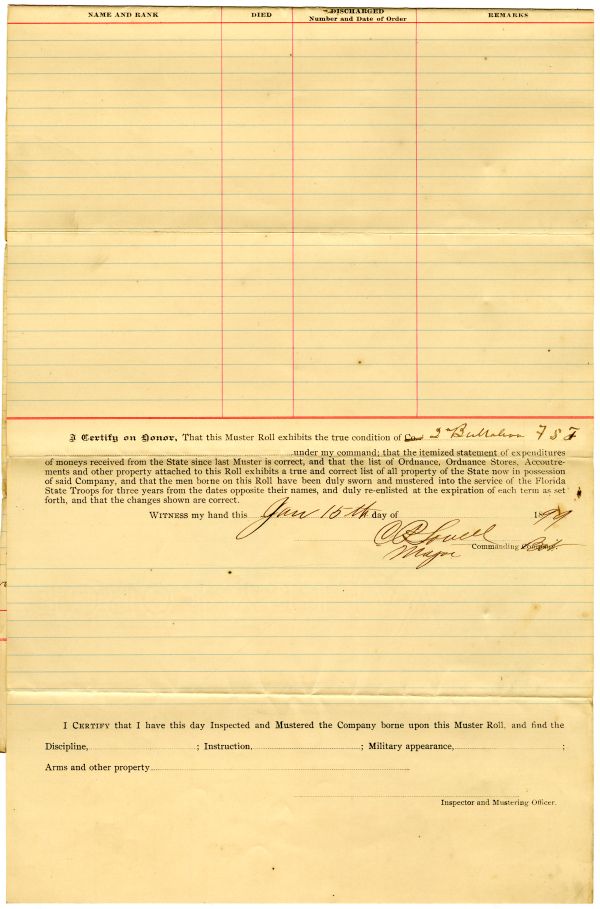 NAME AND RANK DIED DISCHARGED Number and Date of Order REMARKS
I Certify on Honor, That this Muster Roll exhibits the true condition of Co. 2 Battalion F S T
under my command; that the itemized statement of expenditures
of moneys received from the State since last Muster is correct, and that the list of Ordnance, Ordnance Stores, Accoutre-
ments and other property attached to this Roll exhibits a true and correct list of all property of the State now in possession
of said Company, and that the men borne on this Roll have been duly sworn and mustered into the service of the Florida
State Troops for three years from the dates opposite their names, and duly re-enlisted at the expiration of each term as set
forth, and that the changes shown are correct.
WITNESS my hand this Jan 15th day of 1899
C R Lovell
Major Commanding Company.
I CERTIFY that I have this day Inspected and Mustered the Company borne upon this Muster Roll, and find the
Discipline, ; Instruction, ; Military appearance, ;
Arms and other property
Inspector and Mustering Officer.